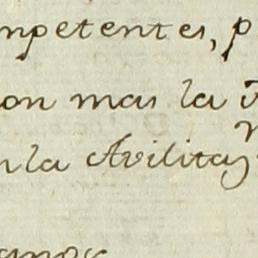 mpetentes, p
on mas la
n la Avilitaz